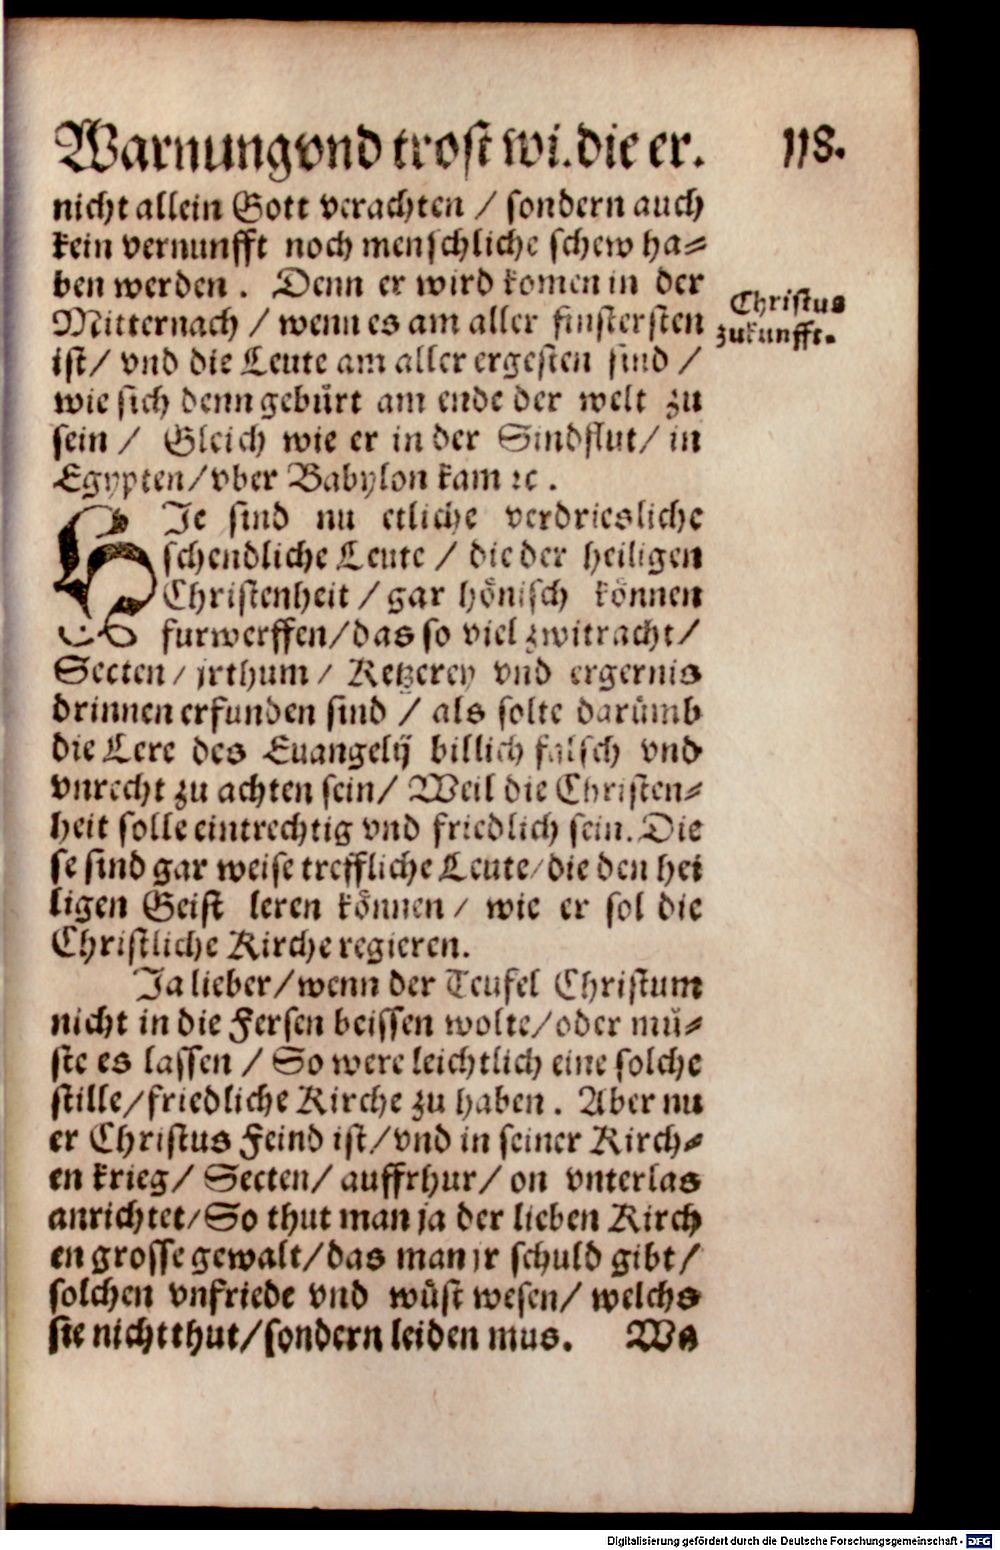 Warnung vnd trost wi. die er. 118.
nicht allein Gott verachten / sondern auch
kein vernunfft noch menschliche schew ha⸗
ben werden. Denn er wird komen in der
Mitternach / wenn es am aller finstersten
Christus
zukunfft.
ist / vnd die Leute am aller ergesten sind /
wie sich denn gebürt am ende der welt zu
sein / Gleich wie er in der Sindflut / in
Egypten / vber Babylon kam ꝛc.
HIe sind nu etliche verdriesliche
schendliche Leute / die der heiligen
Christenheit / gar hönisch können
furwerffen / das so viel zwitracht /
Secten / jrthum / Ketzerey vnd ergernis
drinnen erfunden sind / als solte darümb
die Lere des Euangelij billich falsch vnd
vnrecht zu achten sein / Weil die Christen⸗
heit solle eintrechtig vnd friedlich sein. Die
se sind gar weise treffliche Leute / die den hei
ligen Geist leren können / wie er sol die
Christliche Kirche regieren.
Ja lieber / wenn der Teufel Christum
nicht in die Fersen beissen wolte / oder mü⸗
ste es lassen / So were leichtlich eine solche
stille / friedliche Kirche zu haben. Aber nu
er Christus Feind ist / vnd in seiner Kirch⸗
en krieg / Secten / auffrhur / on vnterlas
anrichtet / So thut man ja der lieben Kirch
en grosse gewalt / das man jr schuld gibt /
solchen vnfriede vnd wüst wesen / welchs
sie nicht thut / sondern leiden mus. We
Digitalisierung gefördert durch die Deutsche Forschungsgemeinschaft - DFG